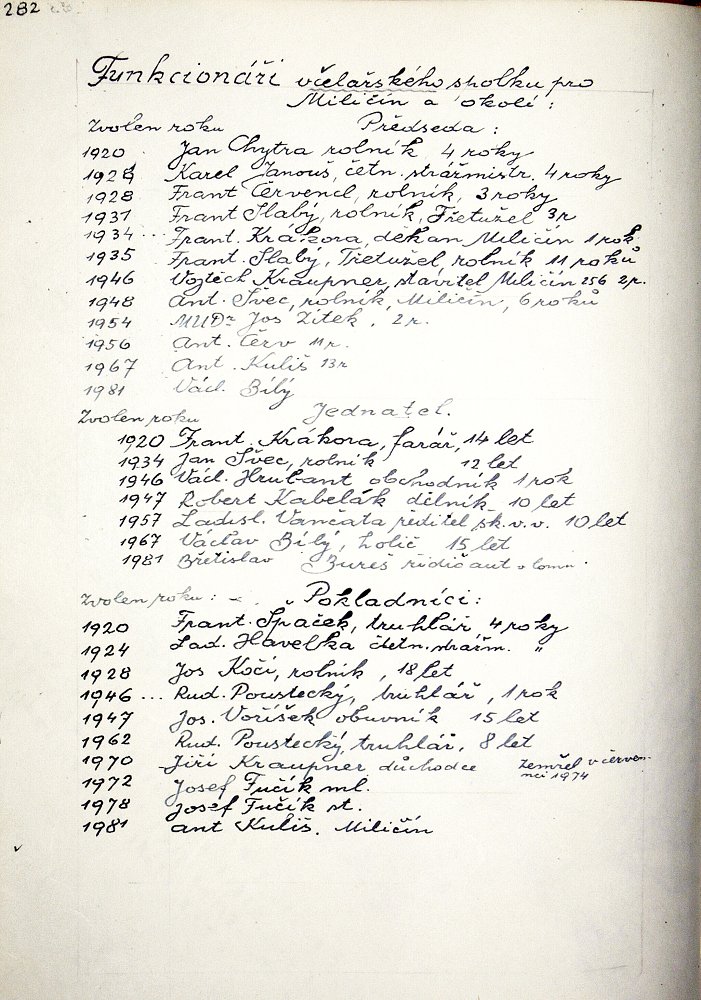 282
Funkcionáři včelařského spolku pro
Miličín a okolí:
Zvolen roku Předseda:
1920 Jan Chytra rolník 4 roky
1924 Karel Janouš, četn. strážmistr. 4 roky
1928 Frant Červencl, rolník, 3 roky
1931 Frant Slabý, rolník, Třetužel 3r
1934... Frant. Krákora, děkan Miličín 1 rok
1935 Frant. Slabý, Třetužel, rolník 11 roků
1946 Vojtěch Kraupner, stavitel Miličín 256 2r.
1948 Ant. Švec, rolník, Miličín, 6 roků
1954 MUDr Jos Zítek, 2r.
1956 Ant. Červ 11r.
1967 Ant. Kuliš 13r
1981 Václ. Bílý
Zvolen roku Jednatel.
1920 Frant. Krákora, farář, 14 let
1934 Jan Švec, rolník 12 let
1946 Václ. Hrubant obchodník 1 rok
1947 Robert Kabelák dělník 10 let
1957 Ladisl. Vančata ředitel šk. v.v. 10 let
1967 Václav Bílý, holič 15 let
1981 Břetislav Bureš řidič aut
Zvolen roku: Pokladníci:
1920 Frant. Špaček, truhlář 4 roky
1924 Lad. Havelka četn. strážm. "
1928 Jos Kočí, rolník, 18 let
1946... Rud. Poustecký, truhlář, 1 rok
1947 Jos. Voříšek obuvník 15 let
1962 Rud. Poustecký, truhlář, 8 let
1970 Jiří Kraupner důchodce zemřel v červen-
nci 1974
1972 Josef Fučík ml.
1978 Josef Fučík st.
1981 Ant Kuliš. Miličín